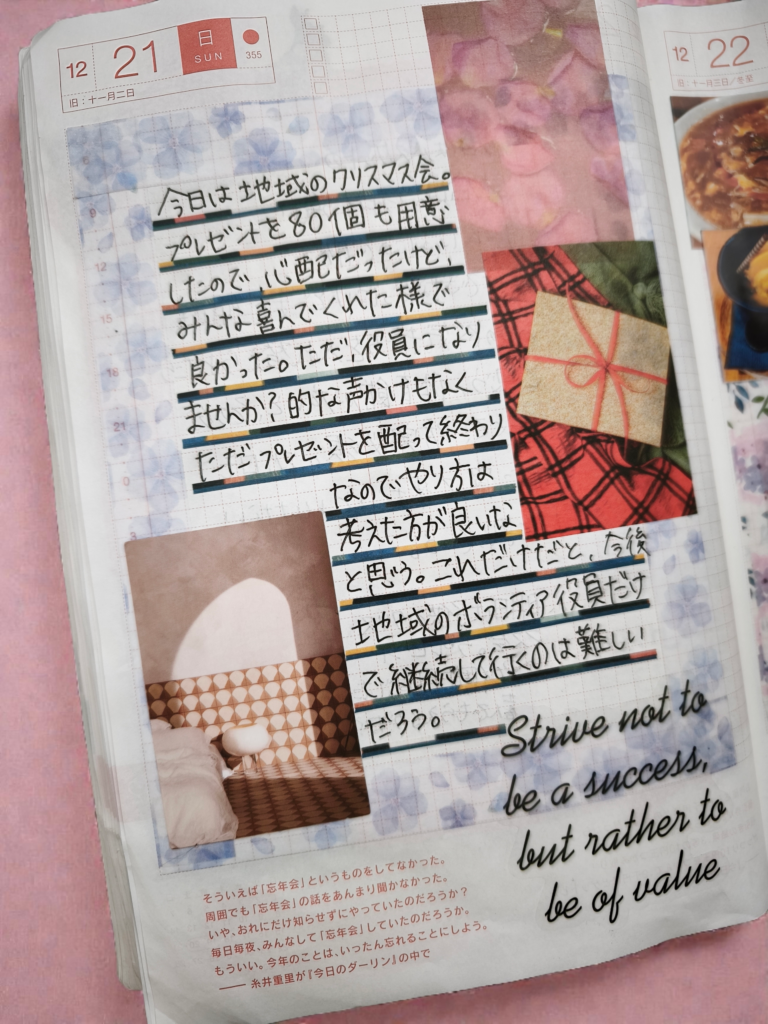 12 21 日 SUN 355
旧：十一月二日
今日は地域のクリスマス会。
プレゼントを80個も用意
したので、心配だったけど、
みんな喜んでくれた様で
良かった。ただ、役員になり
ませんか？的な声かけもなく
ただプレゼントを配って終わり
なのでやり方は
考えた方が良いな
と思う。これだけだと、今後
地域のボランティア役員だけ
で継続して行くのは難しい
だろう。
Strive not to
be a success,
but rather to
be of value
そういえば「忘年会」というものをしてなかった。
周囲でも「忘年会」の話をあんまり聞かなかった。
いや、おれにだけ知らせずにやっていたのだろうか？
毎日毎夜、みんなして「忘年会」していたのだろうか。
もういい。今年のことは、いったん忘れることにしよう。
—— 糸井重里が『今日のダーリン』の中で
12 22
旧：十一月三日／冬至
9
12
15
18
21
0
3